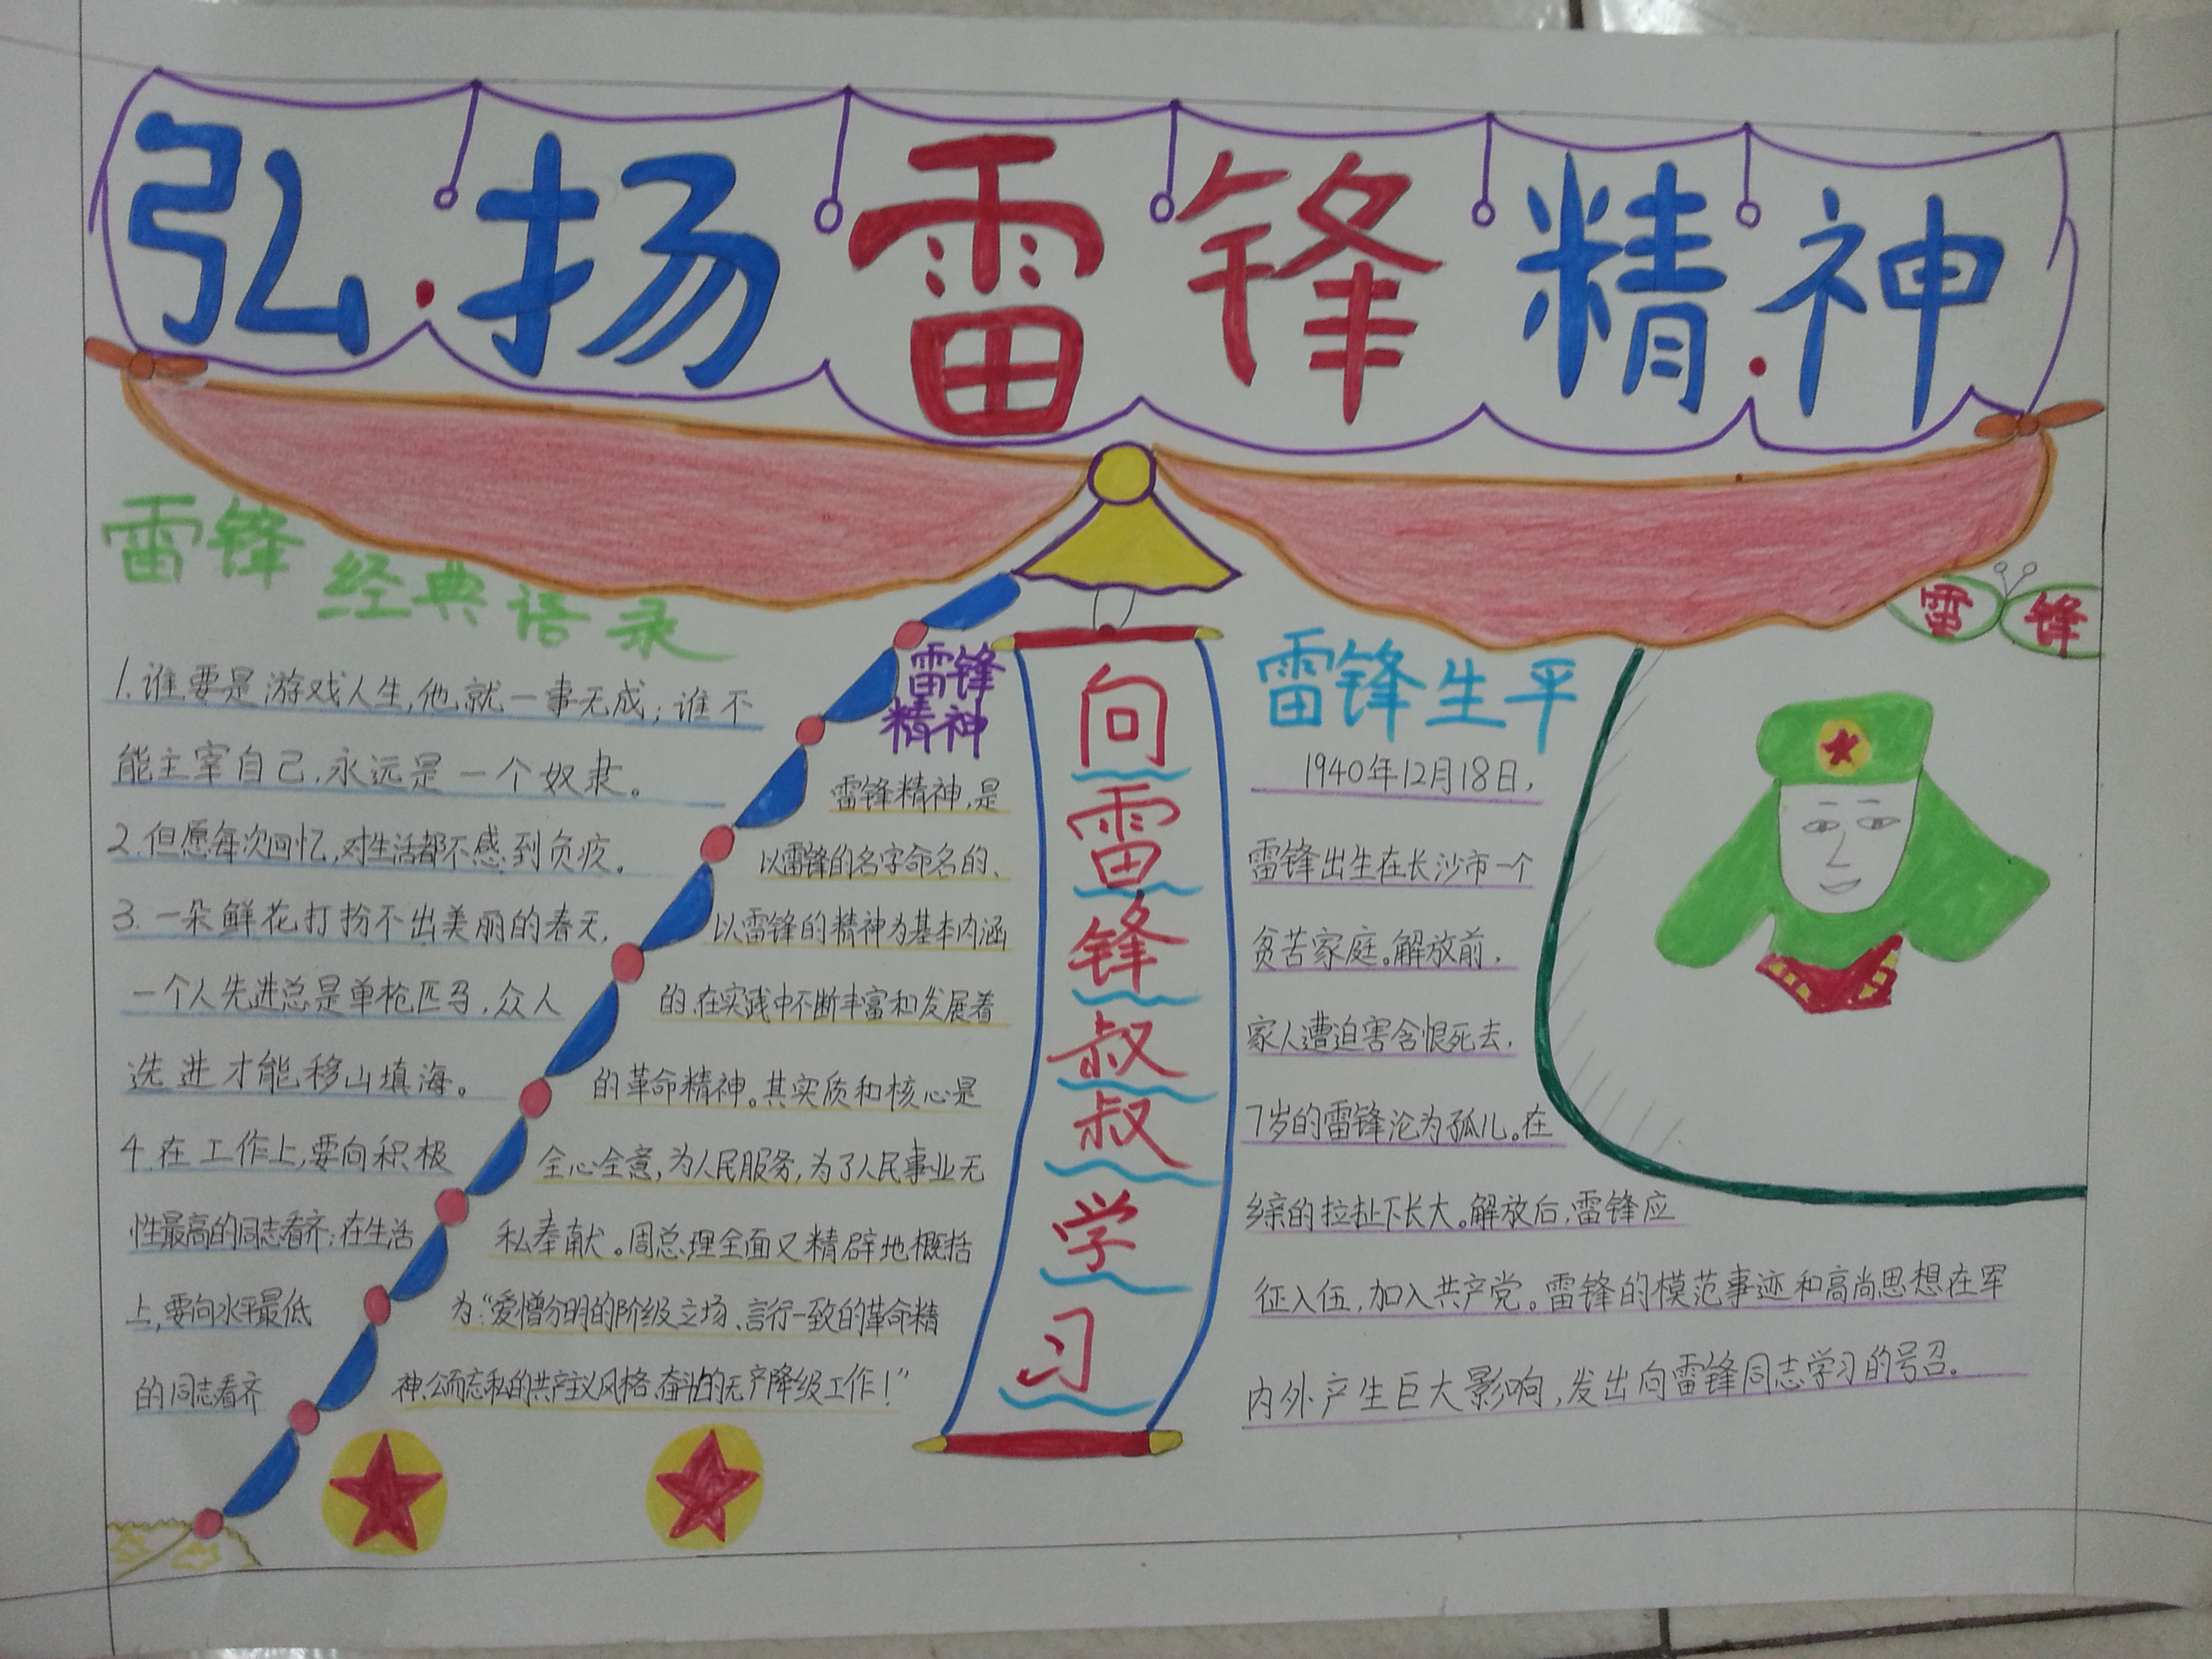 弘扬雷锋精神
雷锋经典语录
1.谁要是游戏人生,他就一事无成;谁不
能主宰自己,永远是一个奴隶。
2.但愿每次回忆,对生活都不感到负疚。
3.一朵鲜花打扮不出美丽的春天,
一个人先进总是单枪匹马,众人
先进才能移山填海。
4.在工作上,要向积极
性最高的同志看齐;在生活
上,要向水平最低
的同志看齐
雷锋
精神
雷锋精神,是
以雷锋的名字命名的、
以雷锋的精神为基本内涵
的、在实践中不断丰富和发展着
的革命精神。其实质和核心是
全心全意,为人民服务,为了人民事业无
私奉献。周总理全面又精辟地概括
为:“爱憎分明的阶级立场、言行一致的革命精
神、公而忘私的共产主义风格、奋斗的无产降级工作!”
向雷锋叔叔学习
雷锋
雷锋生平
1940年12月18日,
雷锋出生在长沙市一个
贫苦家庭。解放前,
家人遭迫害含恨死去,
7岁的雷锋沦为孤儿。在
乡亲的拉扯下长大。解放后,雷锋应
征入伍,加入共产党。雷锋的模范事迹和高尚思想在军
内外产生巨大影响,发出向雷锋同志学习的号召。